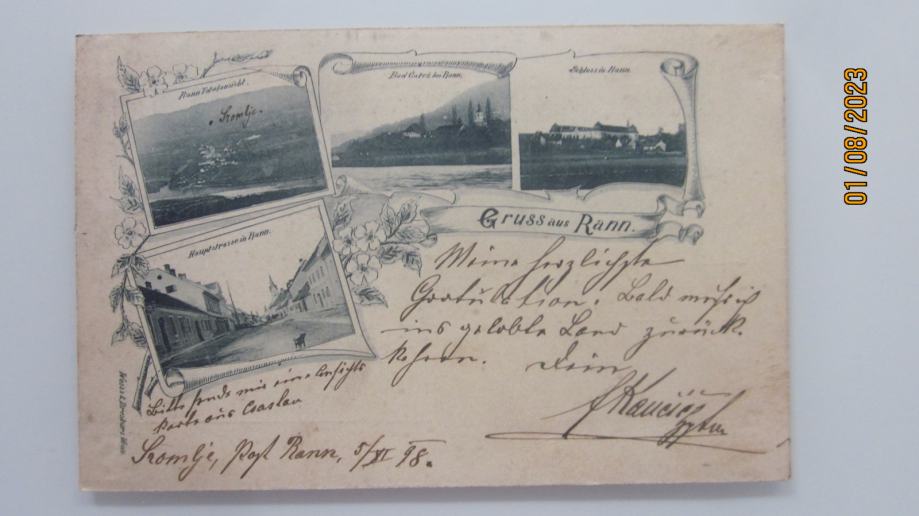 Rann Totalansicht.
Sromlje.
Bad Čatež bei Rann.
Schloss in Rann.
Gruss aus Rann.
Hauptstrasse in Rann.
Meine herzlichste
Gratulation. Bald muß ich
ins gelobte Land zurück
kehren. Dein
Bitte sende mir eine Ansichts
karte aus Csaslau
Sromlje, Post Rann, 5/XI 98.
Wien
01/08/2023